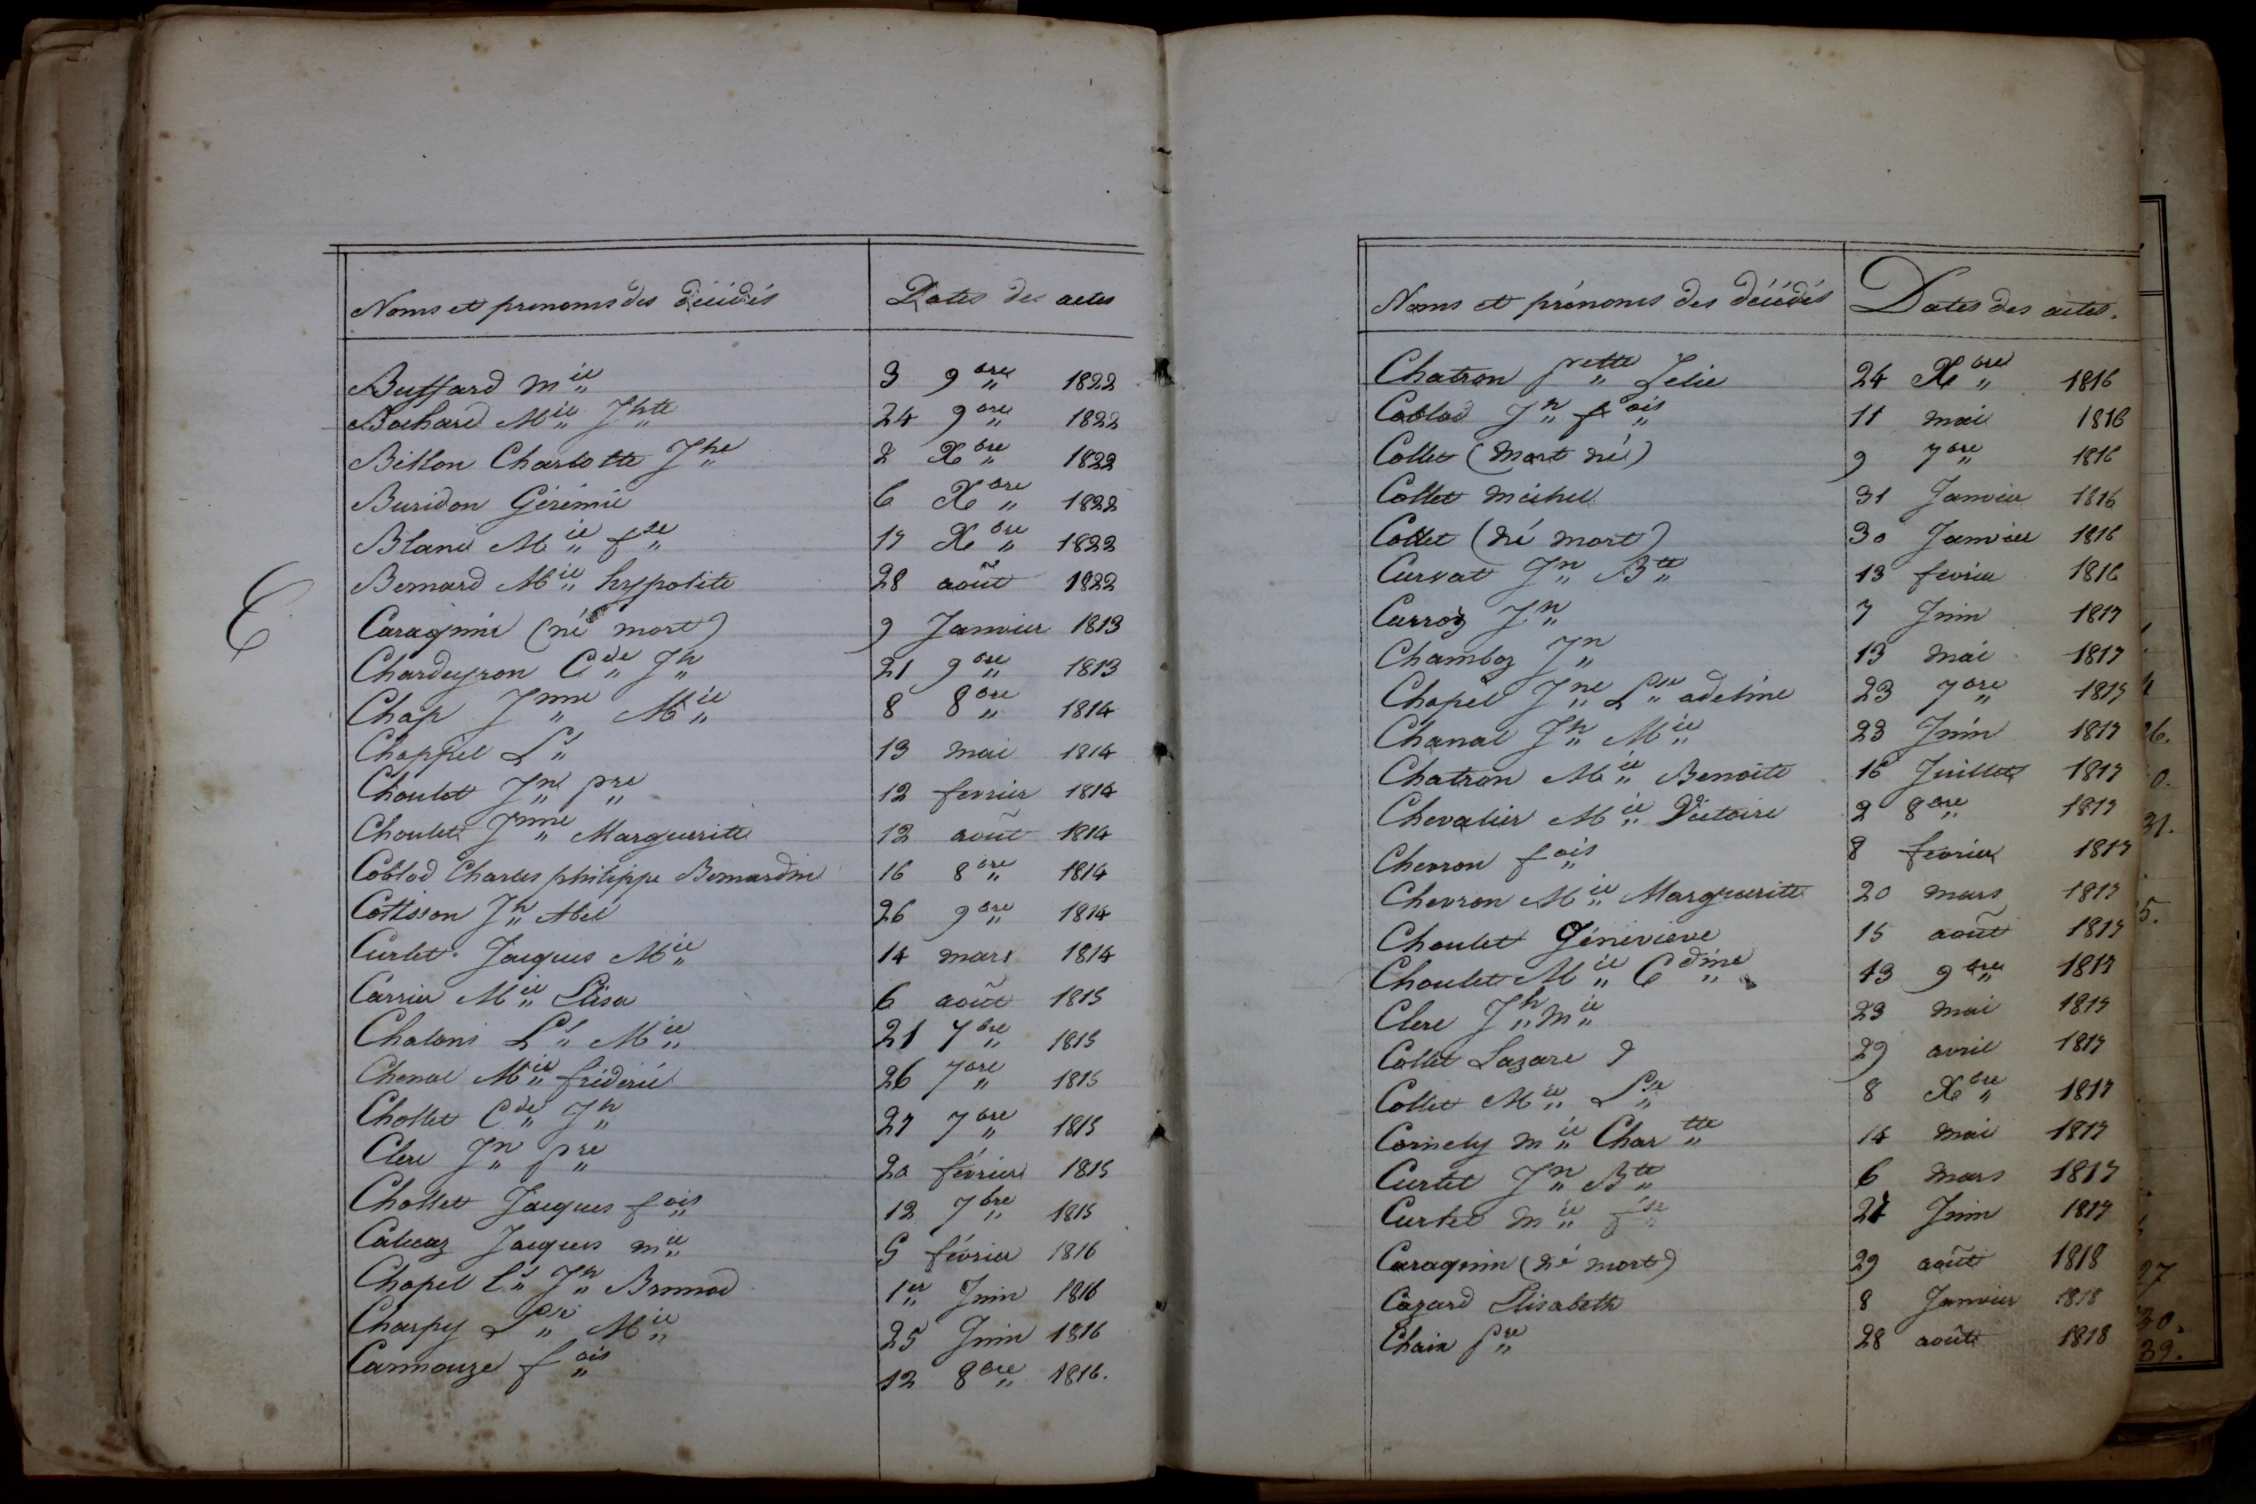 Noms et prenoms des décédés Dates des actes
Buffard Mie 3 9bre 1822
Bochard Mie Jhtte 24 9bre 1822
Billon Charlotte Jhe 2 Xbre 1822
Buridon Gérémie 6 Xbre 1822
Blanc Mie fse 17 Xbre 1822
Bernard Mie hyppolite 28 août 1822
C
Caragnin (né mort) 9 Janvier 1813
Chardeyron Cde Jh 21 9bre 1813
Chap Jnne Mie 8 8bre 1814
Chappel Ls 13 mai 1814
Choulet Jn pre 12 fevrier 1814
Choulet Jnne Marguerite 12 août 1814
Coblod Charles philippe Bernardin 16 8bre 1814
Jh Abel 26 9bre 1814
Curlet Jacques Mie 14 mars 1814
Carrier Mie Elisa 6 août 1815
Chalons Ls Mie 21 7bre 1815
Chenal Mie fréderic 26 7bre 1815
Chollet Cde Jh 27 7bre 1815
Clerc Jn pre 20 février 1815
Chollet Jacques fois 12 7bre 1815
Jacques mie 5 février 1816
Chapel Jh 1er Juin 1816
Charpy Lse Mie 25 Juin 1816
Carmouze fois 12 8bre 1816.
Noms et prénoms des décédés Dates des actes.
Chatron prette Zelie 24 Xbre 1816
Coblod Jn fois 11 mai 1816
Collet (Mort né) 9 7bre 1816
Collet Michel 31 Janvier 1816
Collet (né mort) 30 Janvier 1816
Curvat Jn Btte 13 fevrier 1816
Carroz Jn 7 Juin 1817
Chamboz Jn 13 mai 1817
Chapel Jne Lse adeline 23 7bre 1817
Chanal Jh Mie 23 Juin 1817
Chatron Mie Benoite 16 Juillet 1817
Chevalier Mie Victoire 2 8bre 1817
Chevron fois 8 février 1817
Chevron Mie Marguerite 20 mars 1817
Choulet Géneviève 15 août 1817
Choulet Mie Cdine 13 9bre 1817
Clerc Jh Mie 23 mai 1817
Collet Lazare 29 avril 1817
Collet Mie Lse 8 Xbre 1817
Cornely mie Chartte 14 mai 1817
Curtet Jn Bte 6 mars 1817
Curtet mie fse Juin 1817
Caragnin (né mort) 29 août 1818
Cazard Elisabeth 8 Janvier 1818
Chaix pre 28 août 1818
26.
0.
31.
5.
27
30.
39.